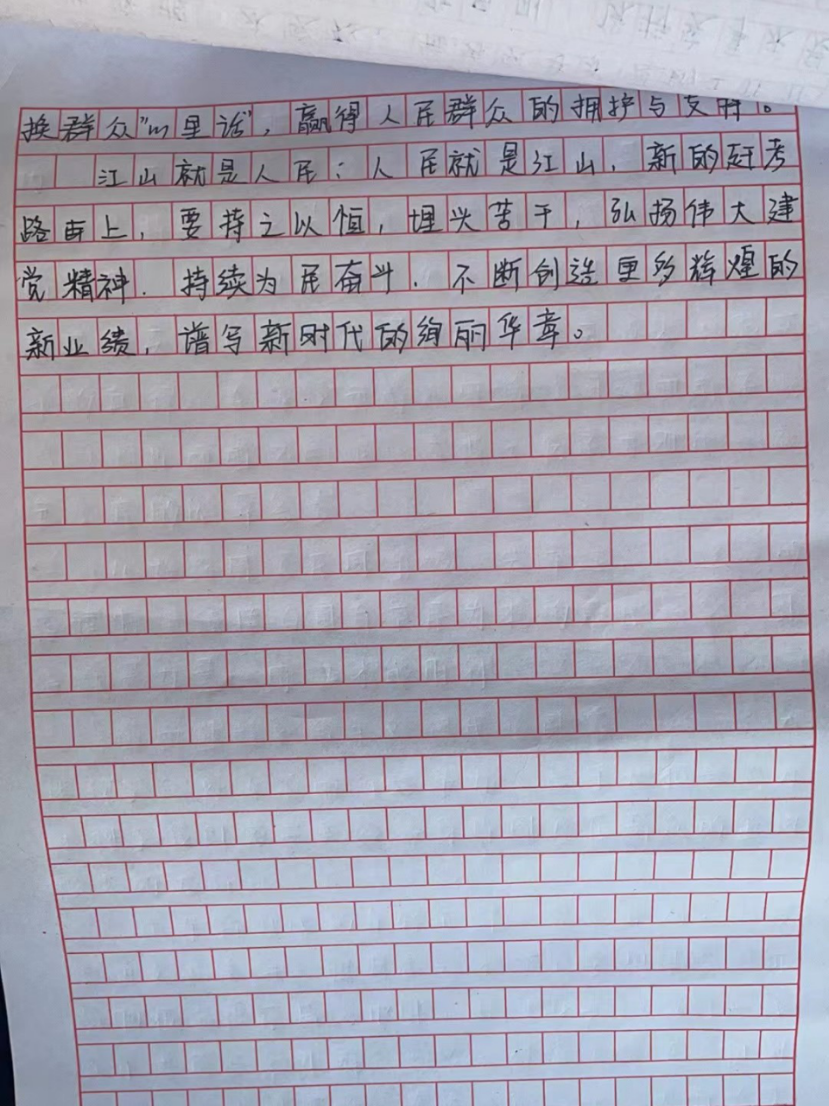 换群众"心里话",赢得人民群众的拥护与支持。
江山就是人民;人民就是江山,新的赶考
路由上,要持之以恒,埋头苦干,弘扬伟大建
党精神.持续为民奋斗.不断创造更多辉煌的
新业绩,谱写新时代的绚丽华章。